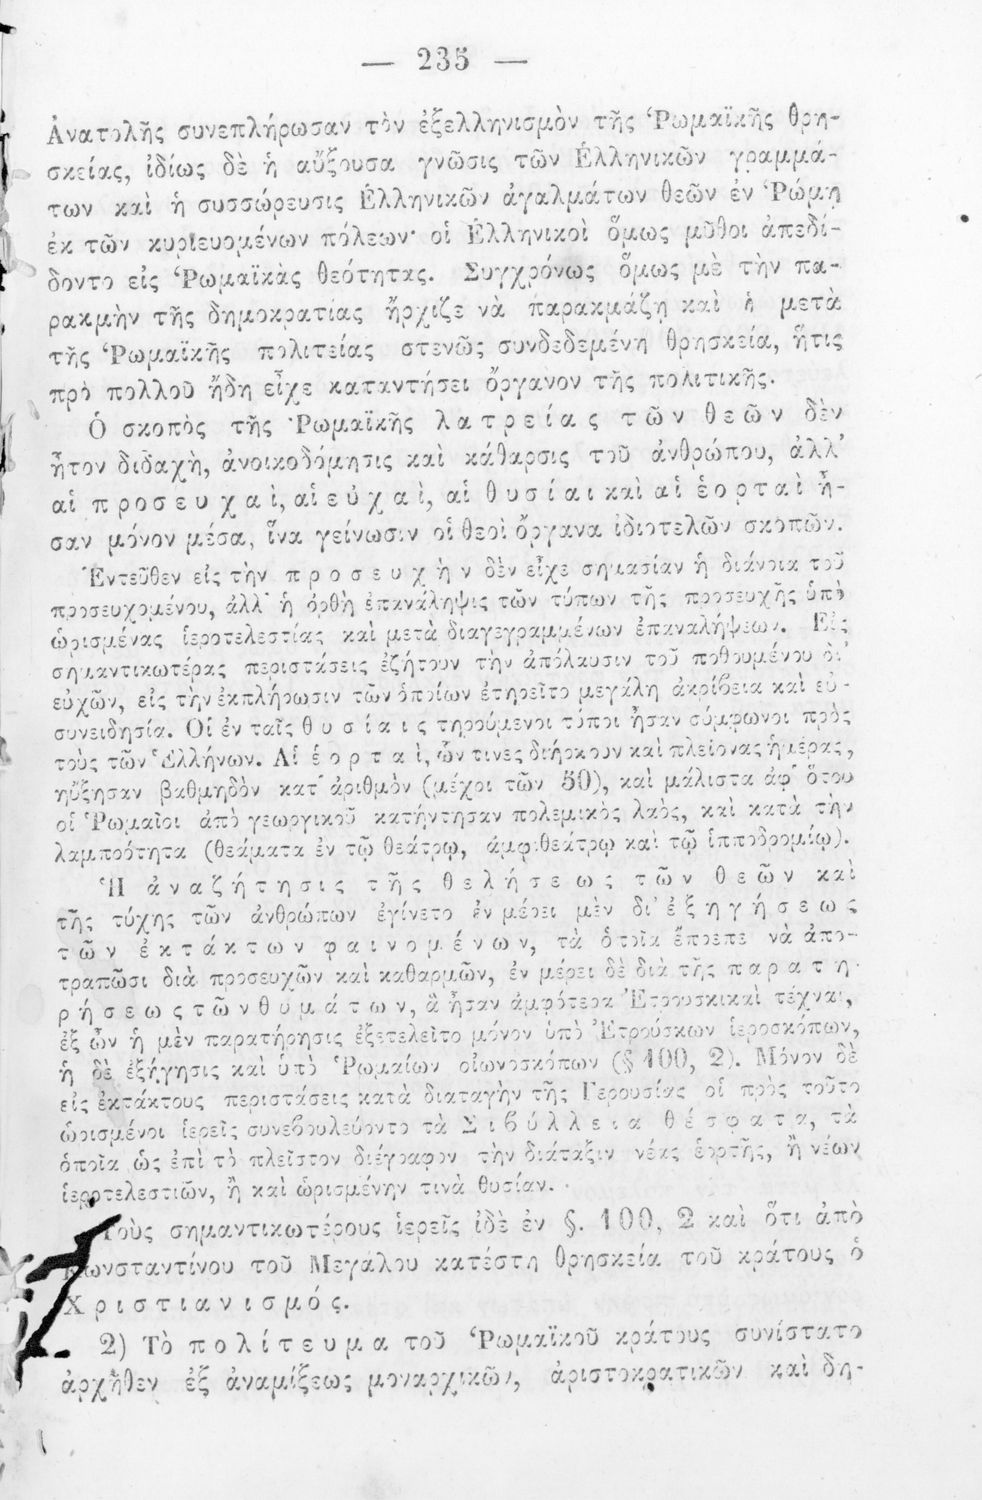 — 235 —
Ἀνατολῆς συνεπλήρωσαν τὸν ἐξελληνισμὸν τῆς Ῥωμαϊκῆς θρη-
σκείας, ἰδίως δὲ ἡ αὔξουσα γνῶσις τῶν Ἑλληνικῶν γραμμά-
των καὶ ἡ συσσώρευσις Ἑλληνικῶν ἀγαλμάτων θεῶν ἐν Ῥώμῃ
ἐκ τῶν κυριευομένων πόλεων· οἱ Ἑλληνικοὶ ὅμως μῦθοι ἀπεδί-
δοντο εἰς Ῥωμαϊκὰς θεότητας. Συγχρόνως ὅμως μὲ τὴν πα-
ρακμὴν τῆς δημοκρατίας ἤρχιζε νὰ παρακμάζῃ καὶ ἡ μετὰ
τῆς Ῥωμαϊκῆς πολιτείας στενῶς συνδεδεμένη θρησκεία, ἥτις
πρὸ πολλοῦ ἤδη εἶχε καταντήσει ὄργανον τῆς πολιτικῆς.
Ὁ σκοπὸς τῆς Ῥωμαϊκῆς λατρείας τῶν θεῶν δὲν
ἦτον διδαχὴ, ἀνοικοδόμησις καὶ κάθαρσις τοῦ ἀνθρώπου, ἀλλ’
αἱ προσευχαὶ, αἱ εὐχαὶ, αἱ θυσίαι καὶ αἱ ἑορταὶ ἦ-
σαν μόνον μέσα, ἵνα γείνωσιν οἱ θεοὶ ὄργανα ἰδιοτελῶν σκοπῶν.
Ἐντεῦθεν εἰς τὴν προσευχὴν δὲν εἶχε σημασίαν ἡ διάνοια τοῦ
προσευχομένου, ἀλλ’ ἡ ὀρθὴ ἐπανάληψις τῶν τύπων τῆς προσευχῆς ὑπὸ
ὡρισμένας ἱεροτελεστίας καὶ μετὰ διαγεγραμμένων ἐπαναλήψεων. Εἰς
σημαντικωτέρας περιστάσεις ἐζήτουν τὴν ἀπόλαυσιν τοῦ ποθουμένου δι’
εὐχῶν, εἰς τὴν ἐκπλήρωσιν τῶν ὁποίων ἐτηρεῖτο μεγάλη ἀκρίβεια καὶ εὐ-
συνειδησία. Οἱ ἐν ταῖς θυσίαις τηρούμενοι τύποι ἦσαν σύμφωνοι πρὸς
τοὺς τῶν Ἑλλήνων. Αἱ ἑορταὶ, ὧν τινες διήρκουν καὶ πλείονας ἡμέρας,
ηὔξησαν βαθμηδὸν κατ’ ἀριθμὸν (μέχρι τῶν 50), καὶ μάλιστα ἀφ’ ὅτου
οἱ Ῥωμαῖοι ἀπὸ γεωργικοῦ κατήντησαν πολεμικὸς λαὸς, καὶ κατὰ τὴν
λαμπρότητα (θεάματα ἐν τῷ θεάτρῳ, ἀμφιθεάτρῳ καὶ τῷ ἱπποδρομίῳ).
Ἡ ἀναζήτησις τῆς θελήσεως τῶν θεῶν καὶ
τῆς τύχης τῶν ἀνθρώπων ἐγίνετο ἐν μέρει μὲν δι’ ἐξηγήσεως
τῶν ἐκτάκτων φαινομένων, τὰ ὁποῖα ἔπρεπε νὰ ἀπο-
τραπῶσι διὰ προσευχῶν καὶ καθαρμῶν, ἐν μέρει δὲ διὰ τῆς παρατη-
ρήσεως τῶν θυμάτων, ἃ ἦσαν ἀμφότερα Ἐτρουσκικαὶ τέχναι,
ἐξ ὧν ἡ μὲν παρατήρησις ἐξετελεῖτο μόνον ὑπὸ Ἐτρούσκων ἱεροσκόπων,
ἡ δὲ ἐξήγησις καὶ ὑπὸ Ῥωμαίων οἰωνοσκόπων (§ 100, 2). Μόνον δὲ
εἰς ἐκτάκτους περιστάσεις κατὰ διαταγὴν τῆς Γερουσίας οἱ πρὸς τοῦτο
ὡρισμένοι ἱερεῖς συνεβουλεύοντο τὰ Σιβύλλεια θέσφατα, τὰ
ὁποῖα ὡς ἐπὶ τὸ πλεῖστον διέγραφον τὴν διάταξιν νέας ἑορτῆς, ἢ νέων
ἱεροτελεστιῶν, ἢ καὶ ὡρισμένην τινὰ θυσίαν.
Τοὺς σημαντικωτέρους ἱερεῖς ἰδὲ ἐν §. 100, 2 καὶ ὅτι ἀπὸ
Κωνσταντίνου τοῦ Μεγάλου κατέστη θρησκεία τοῦ κράτους ὁ
Χριστιανισμός.
2) Τὸ πολίτευμα τοῦ Ῥωμαϊκοῦ κράτους συνίστατο
ἀρχῆθεν ἐξ ἀναμίξεως μοναρχικῶν, ἀριστοκρατικῶν καὶ δη-